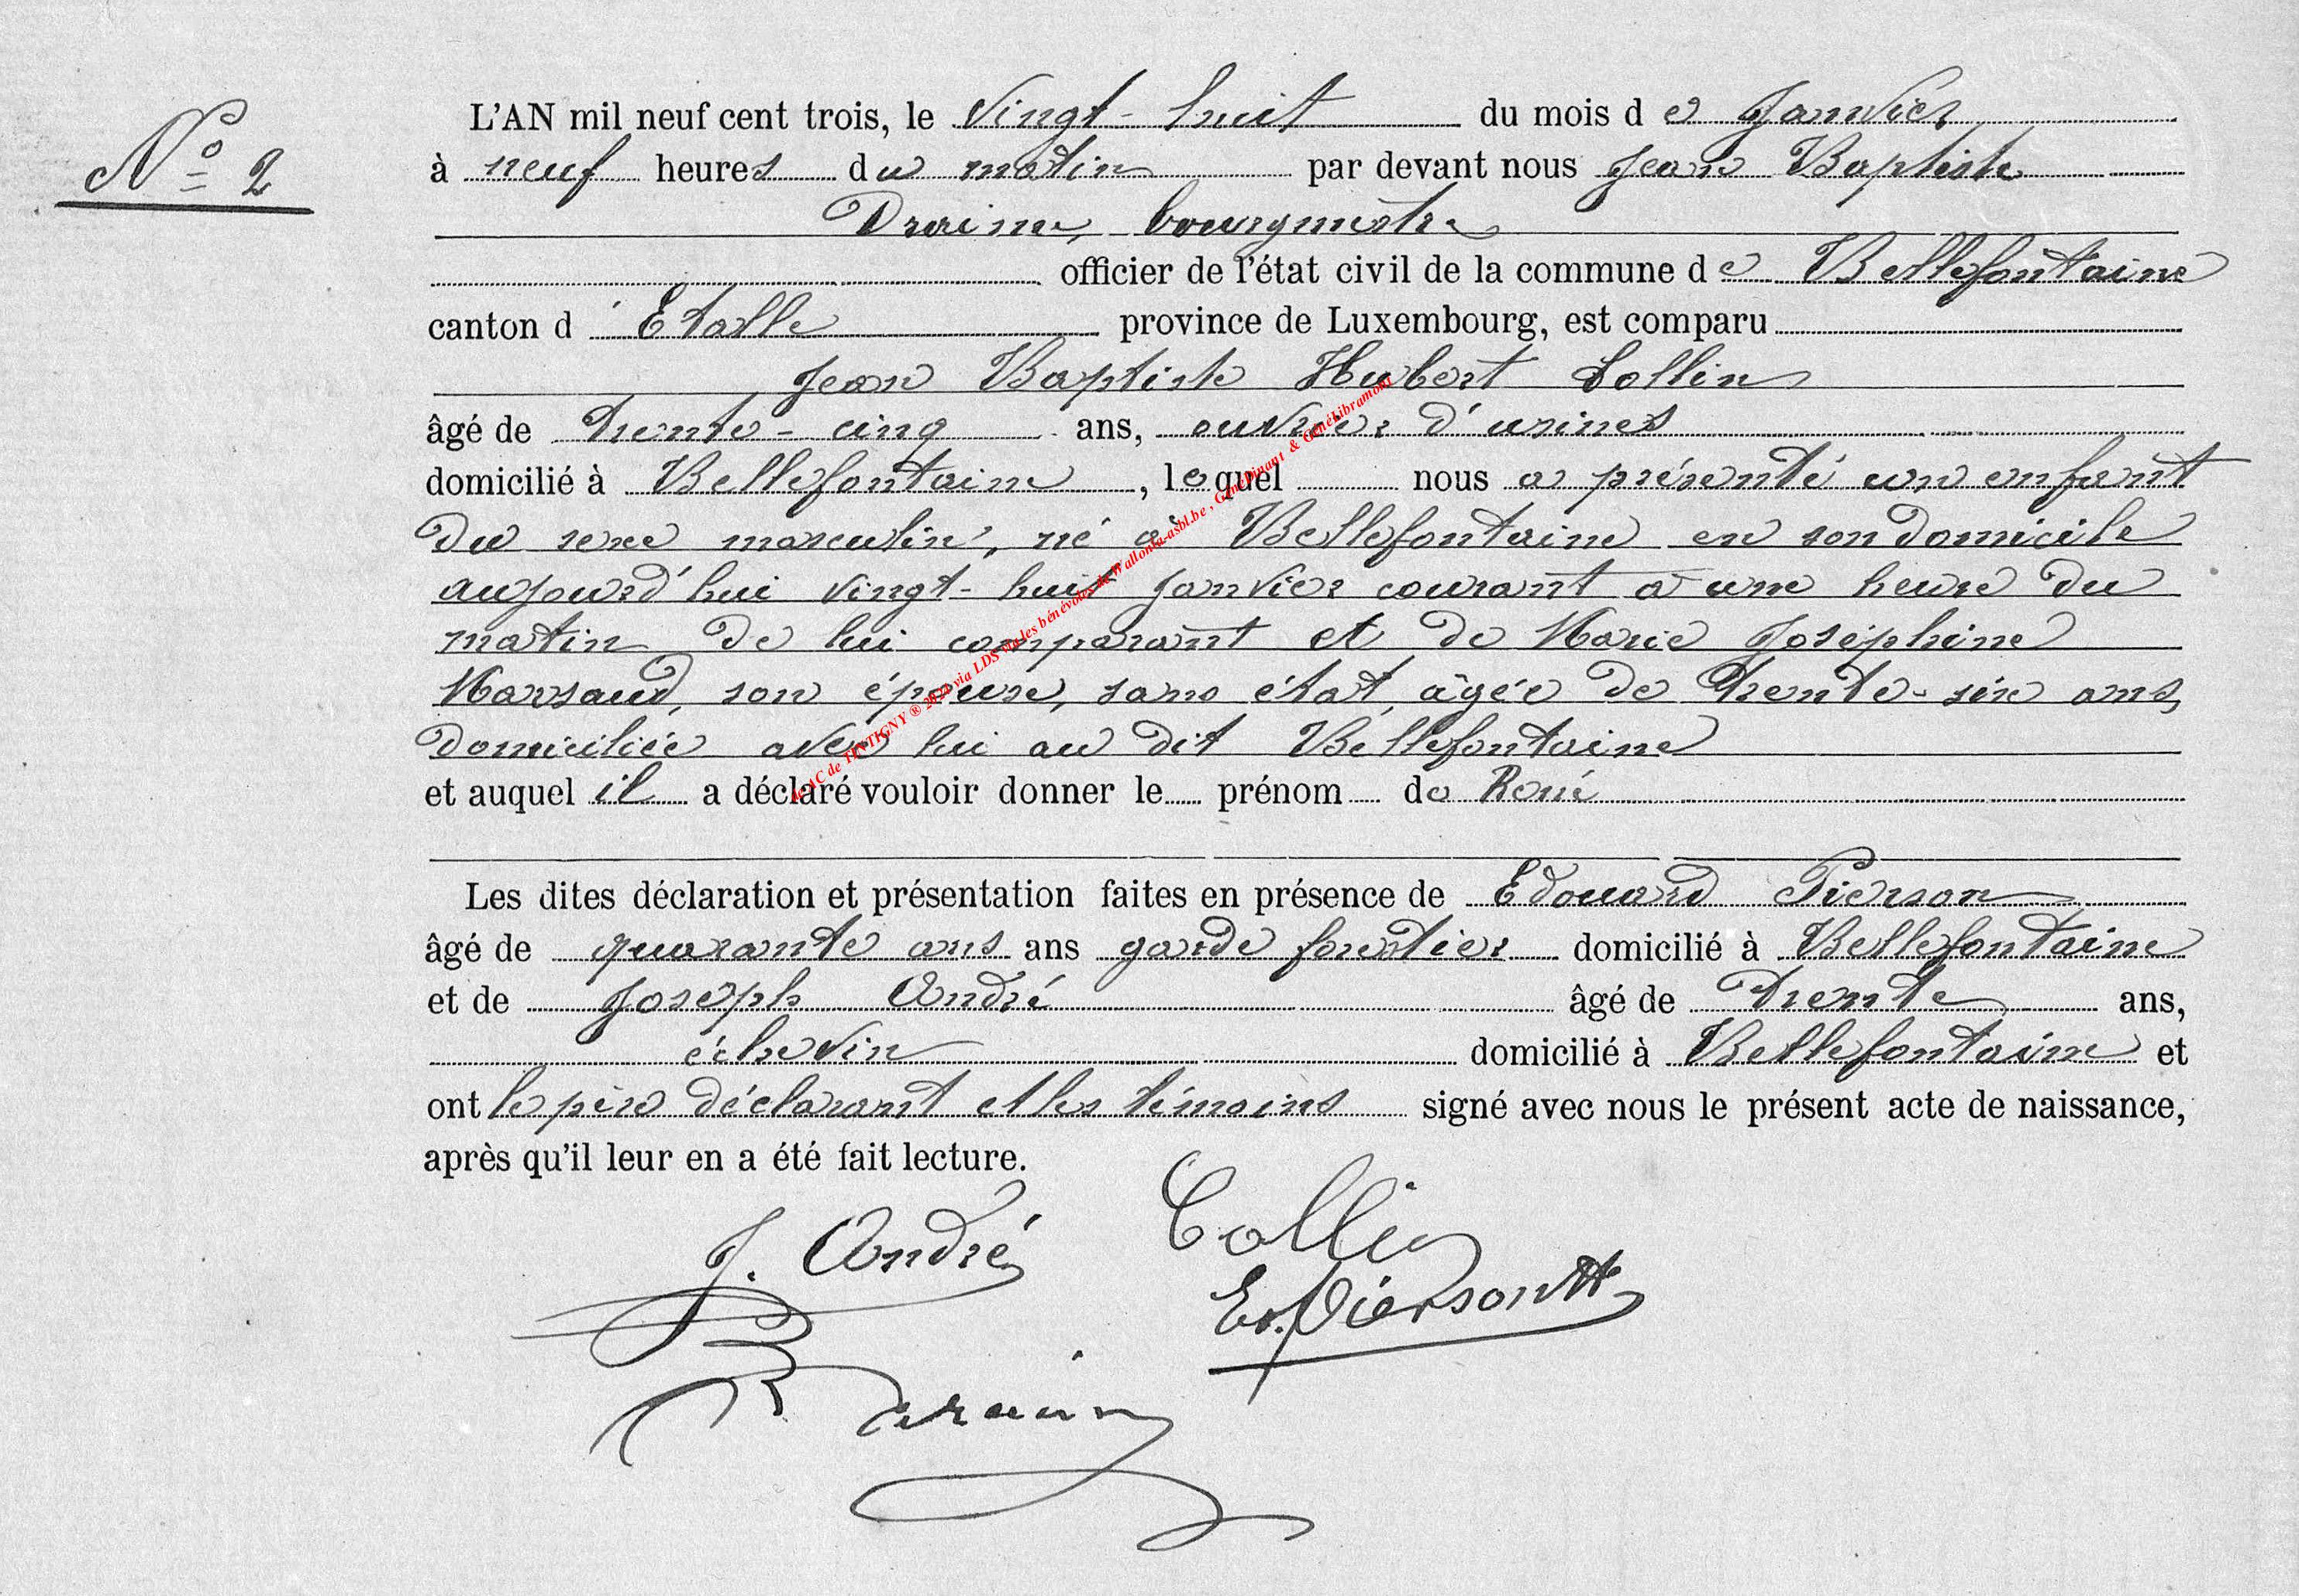 N° 2
L'AN mil neuf cent trois, le Vingt-huit du mois de Janvier
à neuf heures du matin par devant nous Jean Baptiste
Draime, bourgmestre
officier de l'état civil de la commune de Bellefontaine
canton d'Etalle province de Luxembourg, est comparu
Jean Baptiste Hubert Collin
âgé de trente-cinq ans, ouvrier d'usines
domicilié à Bellefontaine, lequel nous a présenté un enfant
du sexe masculin, né à Bellefontaine en son domicile
aujourd'hui vingt-huit janvier courant à une heure du
matin de lui comparant et de Marie Joséphine
Marsaud, son épouse, sans état, âgée de trente-six ans,
domiciliée avec lui au dit Bellefontaine
et auquel il a déclaré vouloir donner le prénom de René
Les dites déclaration et présentation faites en présence de Edouard Pierson
âgé de quarante ans ans garde forestier domicilié à Bellefontaine
et de Joseph André âgé de trente ans,
échevin domicilié à Bellefontaine et
ont le père déclarant et les témoins signé avec nous le présent acte de naissance,
après qu'il leur en a été fait lecture.
J. André Collin
Ed. Pierson
de AC de TINTIGNY ® 2024 via LDS via les bénévoles de Wallonia-asbl.be, GénéDinant & GénéLibramont